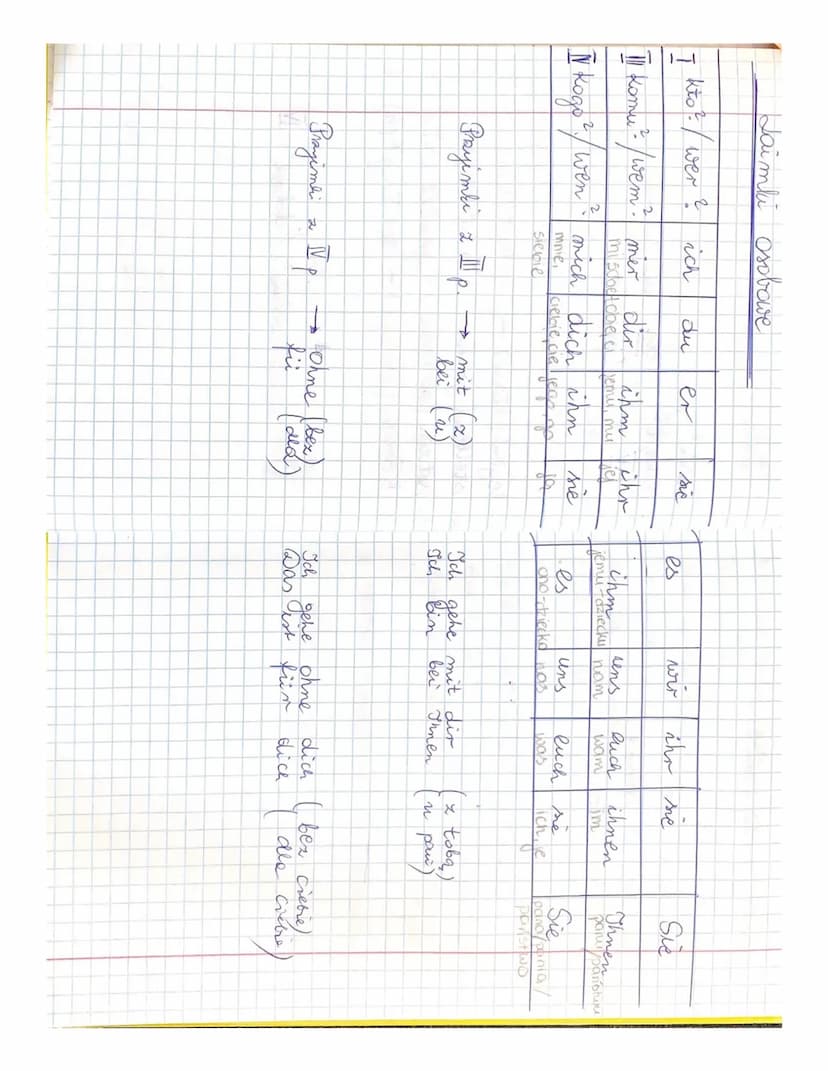 Zaimki osobowe
I kto?/wer? ich du er sie es wir ihr sie Sie
III komu?/wem? mir dir ihm ihr ihm uns euch ihnen Ihnen
mi tobie, ci jemu, mu jej jemu-dziecku nam wam im panu/państwu
IV kogo?/wen? mich dich ihn sie es uns euch sie Sie
mnie, ciebie, cię jego, go ją ono-dziecko nas was ich, je pana/pania/
siebie państwo
Przyimki z III p. → mit (z) Ich gehe mit dir (z tobą)
bei (u) Ich bin bei Ihnen (u pani)
Przyimki z IV p. → ohne (bez) Ich gehe ohne dich (bez ciebie)
fü (dla) Das ist für dich (dla ciebie)